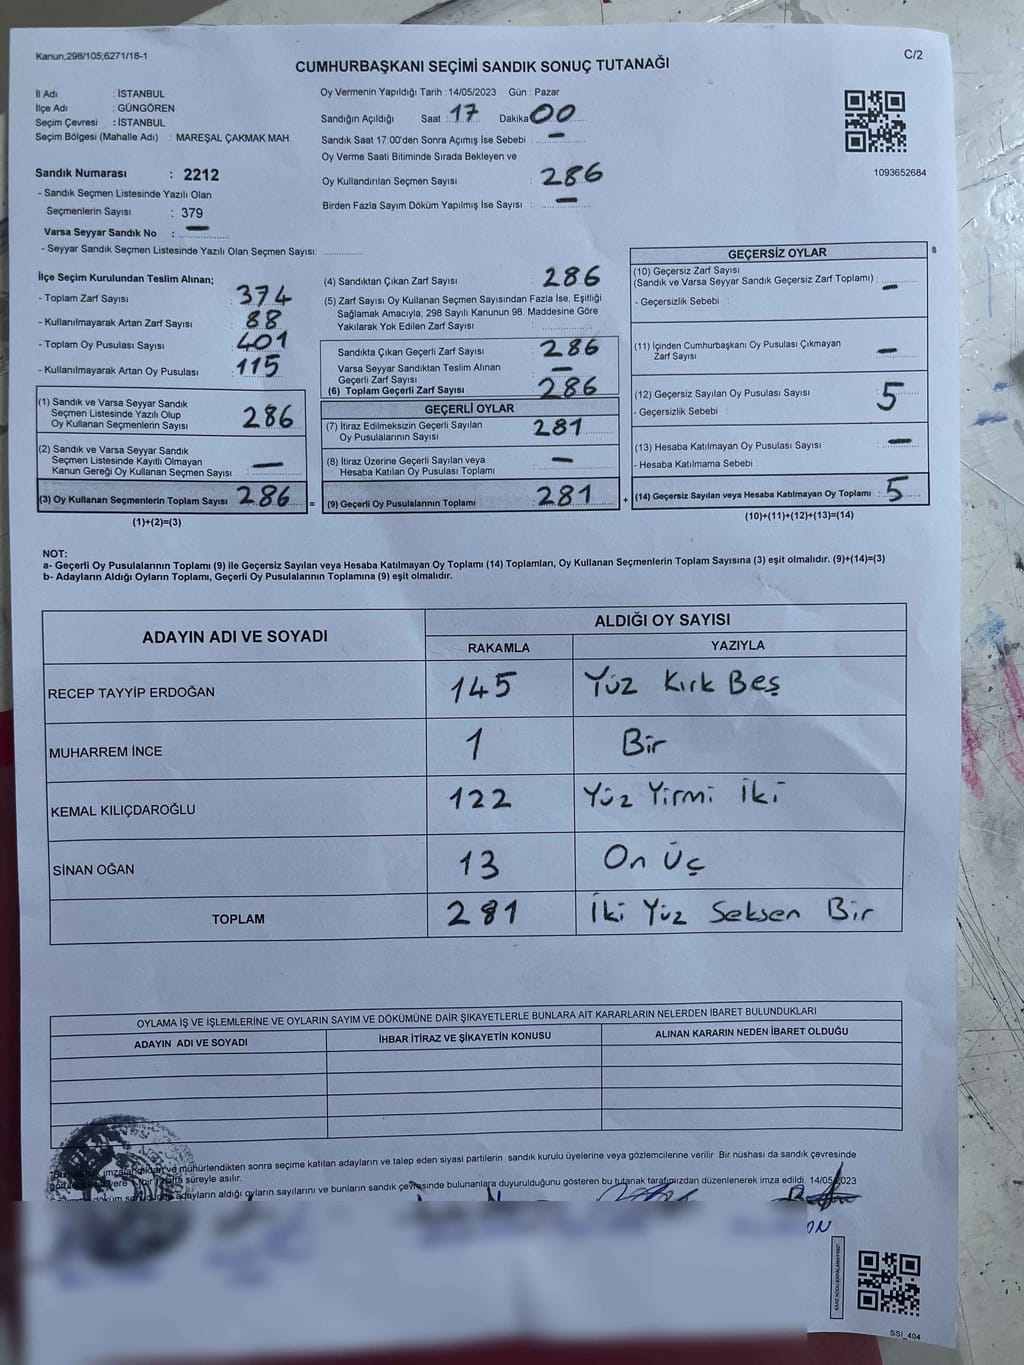 Kanun;298/105;6271/18-1
C/2
CUMHURBAŞKANI SEÇİMİ SANDIK SONUÇ TUTANAĞI
İl Adı : İSTANBUL
İlçe Adı : GÜNGÖREN
Seçim Çevresi : İSTANBUL
Seçim Bölgesi (Mahalle Adı) : MAREŞAL ÇAKMAK MAH.
Sandık Numarası : 2212
- Sandık Seçmen Listesinde Yazılı Olan
Seçmenlerin Sayısı : 379
Varsa Seyyar Sandık No : —
- Seyyar Sandık Seçmen Listesinde Yazılı Olan Seçmen Sayısı:
Oy Vermenin Yapıldığı Tarih : 14/05/2023 Gün : Pazar
Sandığın Açıldığı Saat : 17 Dakika : 00
Sandık Saat 17:00'den Sonra Açımış İse Sebebi : —
Oy Verme Saati Bitiminde Sırada Bekleyen ve
Oy Kullandırılan Seçmen Sayısı : 286
Birden Fazla Sayım Döküm Yapılmış İse Sayısı : —
1093652684
İlçe Seçim Kurulundan Teslim Alınan;
- Toplam Zarf Sayısı : 374
- Kullanılmayarak Artan Zarf Sayısı : 88
- Toplam Oy Pusulası Sayısı : 401
- Kullanılmayarak Artan Oy Pusulası : 115
(1) Sandık ve Varsa Seyyar Sandık
Seçmen Listesinde Yazılı Olup
Oy Kullanan Seçmenlerin Sayısı : 286
(2) Sandık ve Varsa Seyyar Sandık
Seçmen Listesinde Kayıtlı Olmayan
Kanun Gereği Oy Kullanan Seçmen Sayısı : —
(3) Oy Kullanan Seçmenlerin Toplam Sayısı : 286 =
(1)+(2)=(3)
(4) Sandıktan Çıkan Zarf Sayısı : 286
(5) Zarf Sayısı Oy Kullanan Seçmen Sayısından Fazla İse, Eşitliği
Sağlamak Amacıyla, 298 Sayılı Kanunun 98. Maddesine Göre
Yakılarak Yok Edilen Zarf Sayısı :
Sandıkta Çıkan Geçerli Zarf Sayısı : 286
Varsa Seyyar Sandıktan Teslim Alınan
Geçerli Zarf Sayısı : —
(6) Toplam Geçerli Zarf Sayısı : 286
GEÇERLİ OYLAR
(7) İtiraz Edilmeksizin Geçerli Sayılan
Oy Pusulalarının Sayısı : 281
(8) İtiraz Üzerine Geçerli Sayılan veya
Hesaba Katılan Oy Pusulası Toplamı : —
(9) Geçerli Oy Pusulalarının Toplamı : 281 +
GEÇERSİZ OYLAR
(10) Geçersiz Zarf Sayısı
(Sandık ve Varsa Seyyar Sandık Geçersiz Zarf Toplamı) : —
- Geçersizlik Sebebi :
(11) İçinden Cumhurbaşkanı Oy Pusulası Çıkmayan
Zarf Sayısı : —
(12) Geçersiz Sayılan Oy Pusulası Sayısı : 5
- Geçersizlik Sebebi :
(13) Hesaba Katılmayan Oy Pusulası Sayısı : —
- Hesaba Katılmama Sebebi :
(14) Geçersiz Sayılan veya Hesaba Katılmayan Oy Toplamı : 5
(10)+(11)+(12)+(13)=(14)
NOT:
a- Geçerli Oy Pusulalarının Toplamı (9) ile Geçersiz Sayılan veya Hesaba Katılmayan Oy Toplamı (14) Toplamları, Oy Kullanan Seçmenlerin Toplam Sayısına (3) eşit olmalıdır. (9)+(14)=(3)
b- Adayların Aldığı Oyların Toplamı, Geçerli Oy Pusulalarının Toplamına (9) eşit olmalıdır.
ADAYIN ADI VE SOYADI
ALDIĞI OY SAYISI
RAKAMLA YAZIYLA
RECEP TAYYİP ERDOĞAN 145 Yüz Kırk Beş
MUHARREM İNCE 1 Bir
KEMAL KILIÇDAROĞLU 122 Yüz Yirmi İki
SİNAN OĞAN 13 On Üç
TOPLAM 281 İki Yüz Seksen Bir
OYLAMA İŞ VE İŞLEMLERİNE VE OYLARIN SAYIM VE DÖKÜMÜNE DAİR ŞİKAYETLERLE BUNLARA AİT KARARLARIN NELERDEN İBARET BULUNDUKLARI
ADAYIN ADI VE SOYADI İHBAR İTİRAZ VE ŞİKAYETİN KONUSU ALINAN KARARIN NEDEN İBARET OLDUĞU
ve mühürlendikten sonra seçime katılan adayların ve talep eden siyasi partilerin sandık kurulu üyelerine veya gözlemcilerine verilir. Bir nüshası da sandık çevresinde
süreyle asılır.
adayların aldığı oyların sayılarını ve bunların sandık çevresinde bulunanlara duyurulduğunu gösteren bu tutanak tarafımızdan düzenlenerek imza edildi. 14/05/2023
SSI_404